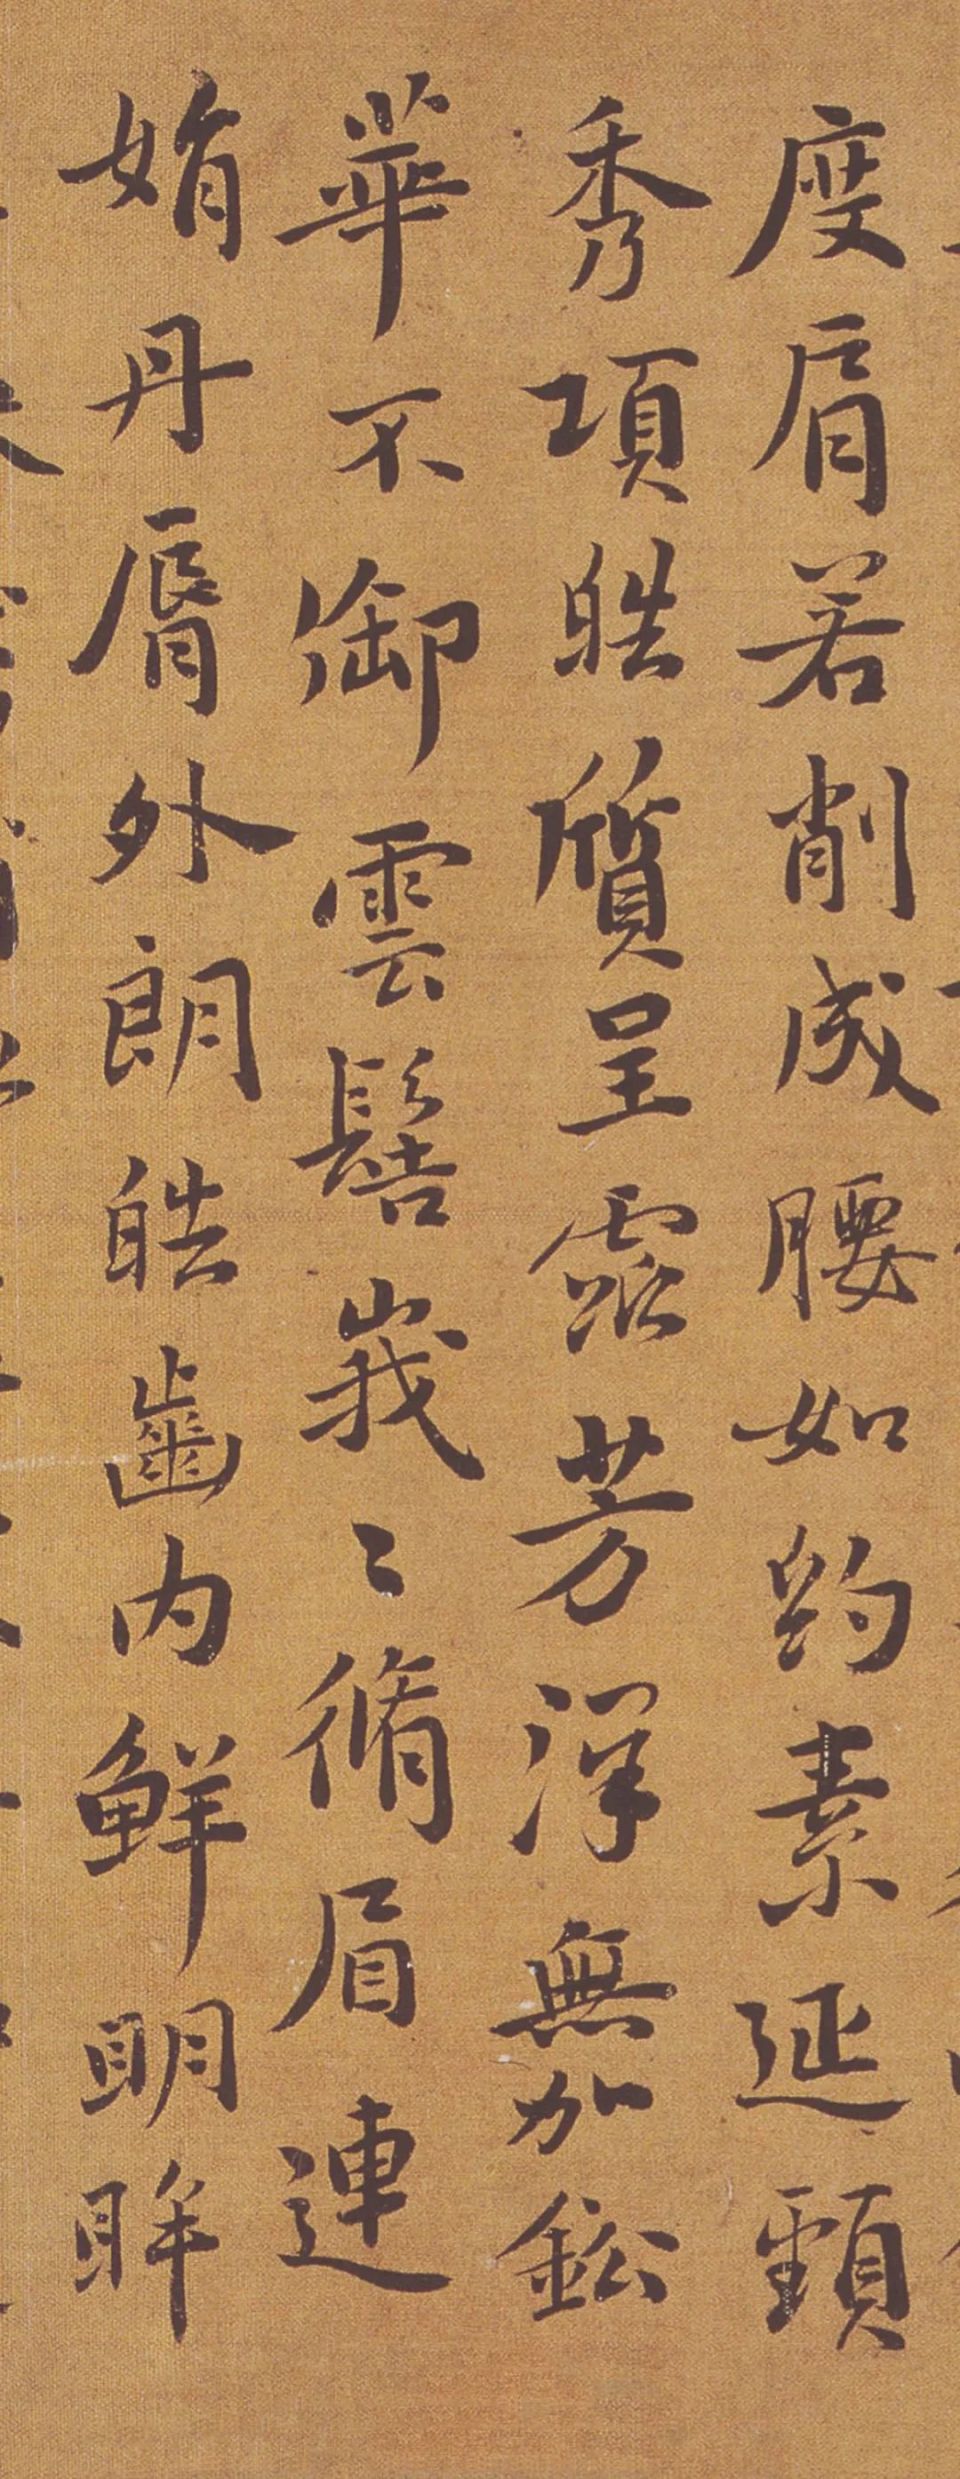 度肩若削成腰如約素延頸
秀項皓質呈露芳澤無加鈆
華不御雲髻峩〻脩眉連
娟丹脣外朗皓齒内鮮明眸